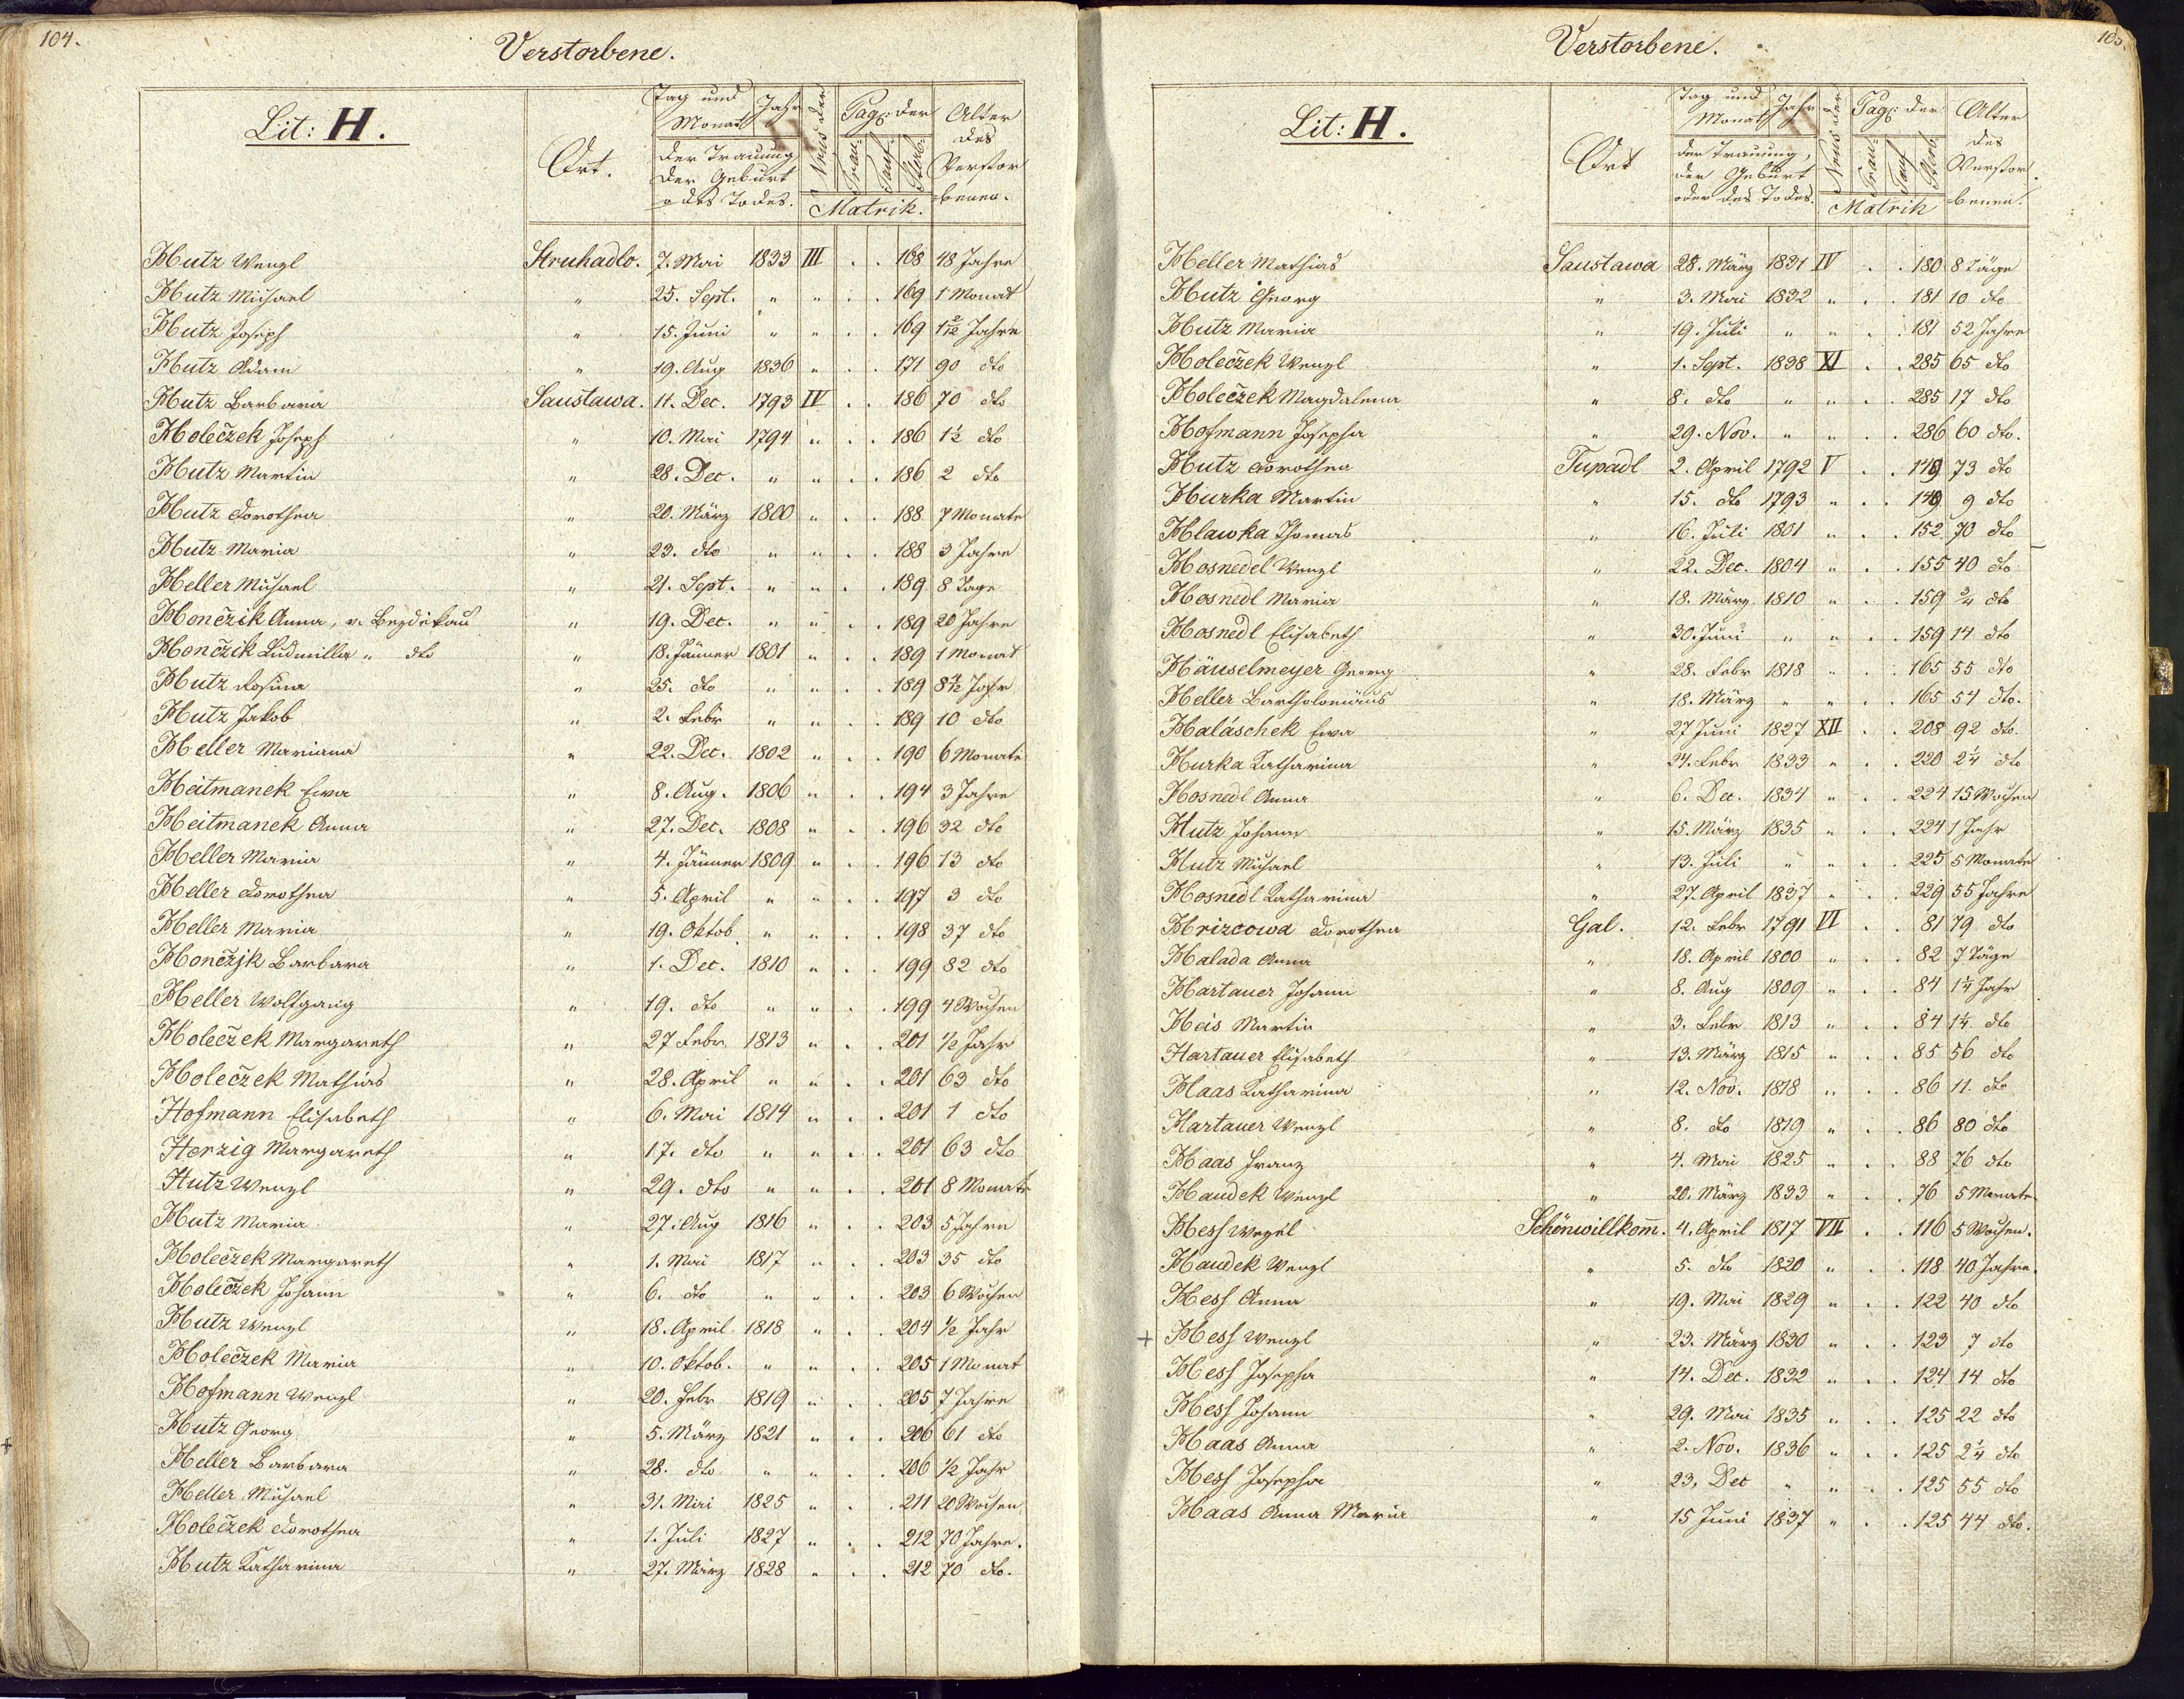 104.
Verstorbene.
Lit: H.
Ort.
Tag und Monat
Jahr
der Trauung
der Geburt
o des Todes.
Pag: der
Trau-
Tauf-
Sterb-
Matrik.
Alter
des
Verstor
benen.
Hutz Wenzl Struhadlo. 7. Mai 1833 III . . 168 48 Jahre
Hutz Michael " 25. Sept. " " . . 169 1 Monat
Hutz Joseph " 15. Juni " " . . 169 1 2/12 Jahre
Hutz Adam " 19. Aug 1836 " . . 171 90 dto
Hutz Barbara Saustawa. 11. Dec. 1793 IV . . 186 70 dto
Holeczek Joseph " 10. Mai 1794 " . . 186 1½ dto
Hutz Martin " 28. Dec. " " . . 186 2 dto
Hutz Dorothea " 20. März 1800 " . . 188 7 Monate
Hutz Maria " 23. dto " " . . 188 3 Jahre
Heller Michael " 21. Sept. " " . . 189 8 Tage
Honczik Anna, v. Bezdiekau " 19. Dec. " " . . 189 20 Jahre
Honczik Ludmilla " dto " 18. Jänner 1801 " . . 189 1 Monat
Hutz Rosina " 25. dto " " . . 189 8½ Jahr
Hutz Jakob " 2. Febr " " . . 189 10 dto
Heller Mariana " 22. Dec. 1802 " . . 190 6 Monate
Heitmanek Ewa " 8. Aug. 1806 " . . 194 3 Jahre
Heitmanek Anna " 27. Dec. 1808 " . . 196 32 dto
Heller Maria " 4. Jänner 1809 " . . 196 13 dto
Heller Dorothea " 5. April " " . . 197 3 dto
Heller Maria " 19. Oktob. " " . . 198 37 dto
Honczjk Barbara " 1. Dec. 1810 " . . 199 82 dto
Heller Wolfgang " 19. dto " " . . 199 4 Wochen
Holeczek Margareth " 27 Febr 1813 " . . 201 ½ Jahr
Holeczek Mathias " 28. April " " . . 201 63 dto
Hofmann Elisabeth " 6. Mai 1814 " . . 201 1 dto
Herzig Margareth " 17. dto " " . . 201 63 dto
Hutz Wenzl " 29. dto " " . . 201 8 Monate
Hutz Maria " 27. Aug 1816 " . . 203 5 Jahre
Holeczek Margareth " 1. Mai 1817 " . . 203 35 dto
Holeczek Johann " 6. dto " " . . 203 6 Wochen
Hutz Wenzl " 18. April 1818 " . . 204 ½ Jahr
Holeczek Maria " 10. Oktob. " " . . 205 1 Monat
Hofmann Wenzl " 20. Febr 1819 " . . 205 7 Jahre
Hutz Georg " 5. März 1821 " . . 206 61 dto
Heller Barbara " 28. dto " " . . 206 ½ Jahr
Heller Michael " 31. Mai 1825 " . . 211 20 Wochen
Holeczek Dorothea " 1. Juli 1827 " . . 212 70 Jahre.
Hutz Katharina " 27. März 1828 " . . 212 70 dto.
105.
Verstorbene.
Lit: H.
Ort
Tag und Monat
Jahr
der Trauung,
der Geburt
oder des Todes.
Pag: der
Trau-
Tauf
Sterb
Matrik
Alter
des
Verstor
benen.
Heller Mathias Saustawa 28. März 1831 IV . . 180 8 Täge
Hutz Georg " 3. Mai 1832 " . . 181 10 dto
Hutz Maria " 19. Juli " " . . 181 52 Jahre
Holeczek Wenzl " 1. Sept. 1838 XI . . 285 65 dto
Holeczek Magdalena " 8. dto " " . . 285 17 dto
Hofmann Josepha " 29. Nov. " " . . 286 60 dto.
Hutz Dorothea Tupadl 2. April 1792 V . . 149 73 dto
Hurka Martin " 15. dto 1793 " . . 149 9 dto
Hlawka Thomas " 16. Juli 1801 " . . 152 70 dto
Hosnedel Wenzl " 22. Dec. 1804 " . . 155 40 dto
Hosnedl Maria " 18. März 1810 " . . 159 ¾ dto
Hosnedl Elisabeth " 30. Juni " " . . 159 14 dto
Häuselmeyer Georg " 28. Febr 1818 " . . 165 55 dto
Heller Bartholomäus " 18. März " " . . 165 54 dto.
Haláschek Ewa " 27 Juni 1827 XII . . 208 92 dto.
Hurka Katharina " 24. Febr 1833 " . . 220 2¼ dto
Hosnedl Anna " 6. Dec. 1834 " . . 224 15 Wochen
Hutz Johann " 15. März 1835 " . . 224 1 Jahr
Hutz Michael " 13. Juli " " . . 225 5 Monate
Hosnedl Katharina " 27. April 1837 " . . 229 55 Jahre
Hrizcowa Dorothea Gal. 12. Febr 1791 VI . . 81 79 dto
Halada Anna " 18. April 1800 " . . 82 7 Täge
Hartauer Johann " 8. Aug 1809 " . . 84 1¼ Jahr
Heis Martin " 3. Febr 1813 " . . 84 1¼ dto
Hartauer Elisabeth " 13. März 1815 " . . 85 56 dto
Haas Katharina " 12. Nov. 1818 " . . 86 11. dto
Hartauer Wenzl " 8. dto 1819 " . . 86 80 dto
Haas Franz " 4. Mai 1825 " . . 88 76 dto
Haudek Wenzl " 20. März 1833 " . . 76 5 Monate
Hess Wenzl Schönwillkom̅. 4. April 1817 VII . . 116 5 Wochen.
Haudek Wenzl " 5. dto 1820 " . . 118 40 Jahre.
Hess Anna " 19. Mai 1829 " . . 122 40 dto
+ Hess Wenzl " 23. März 1830 " . . 123 7 dto
Hess Josepha " 14. Dec. 1832 " . . 124 14 dto
Hess Johann " 29. Mai 1835 " . . 125 22 dto
Haas Anna " 2. Nov. 1836 " . . 125 2¼ dto
Hess Josepha " 23. Dec " " . . 125 55 dto
Haas Anna Maria " 15 Juni 1837 " . . 125 44 dto.